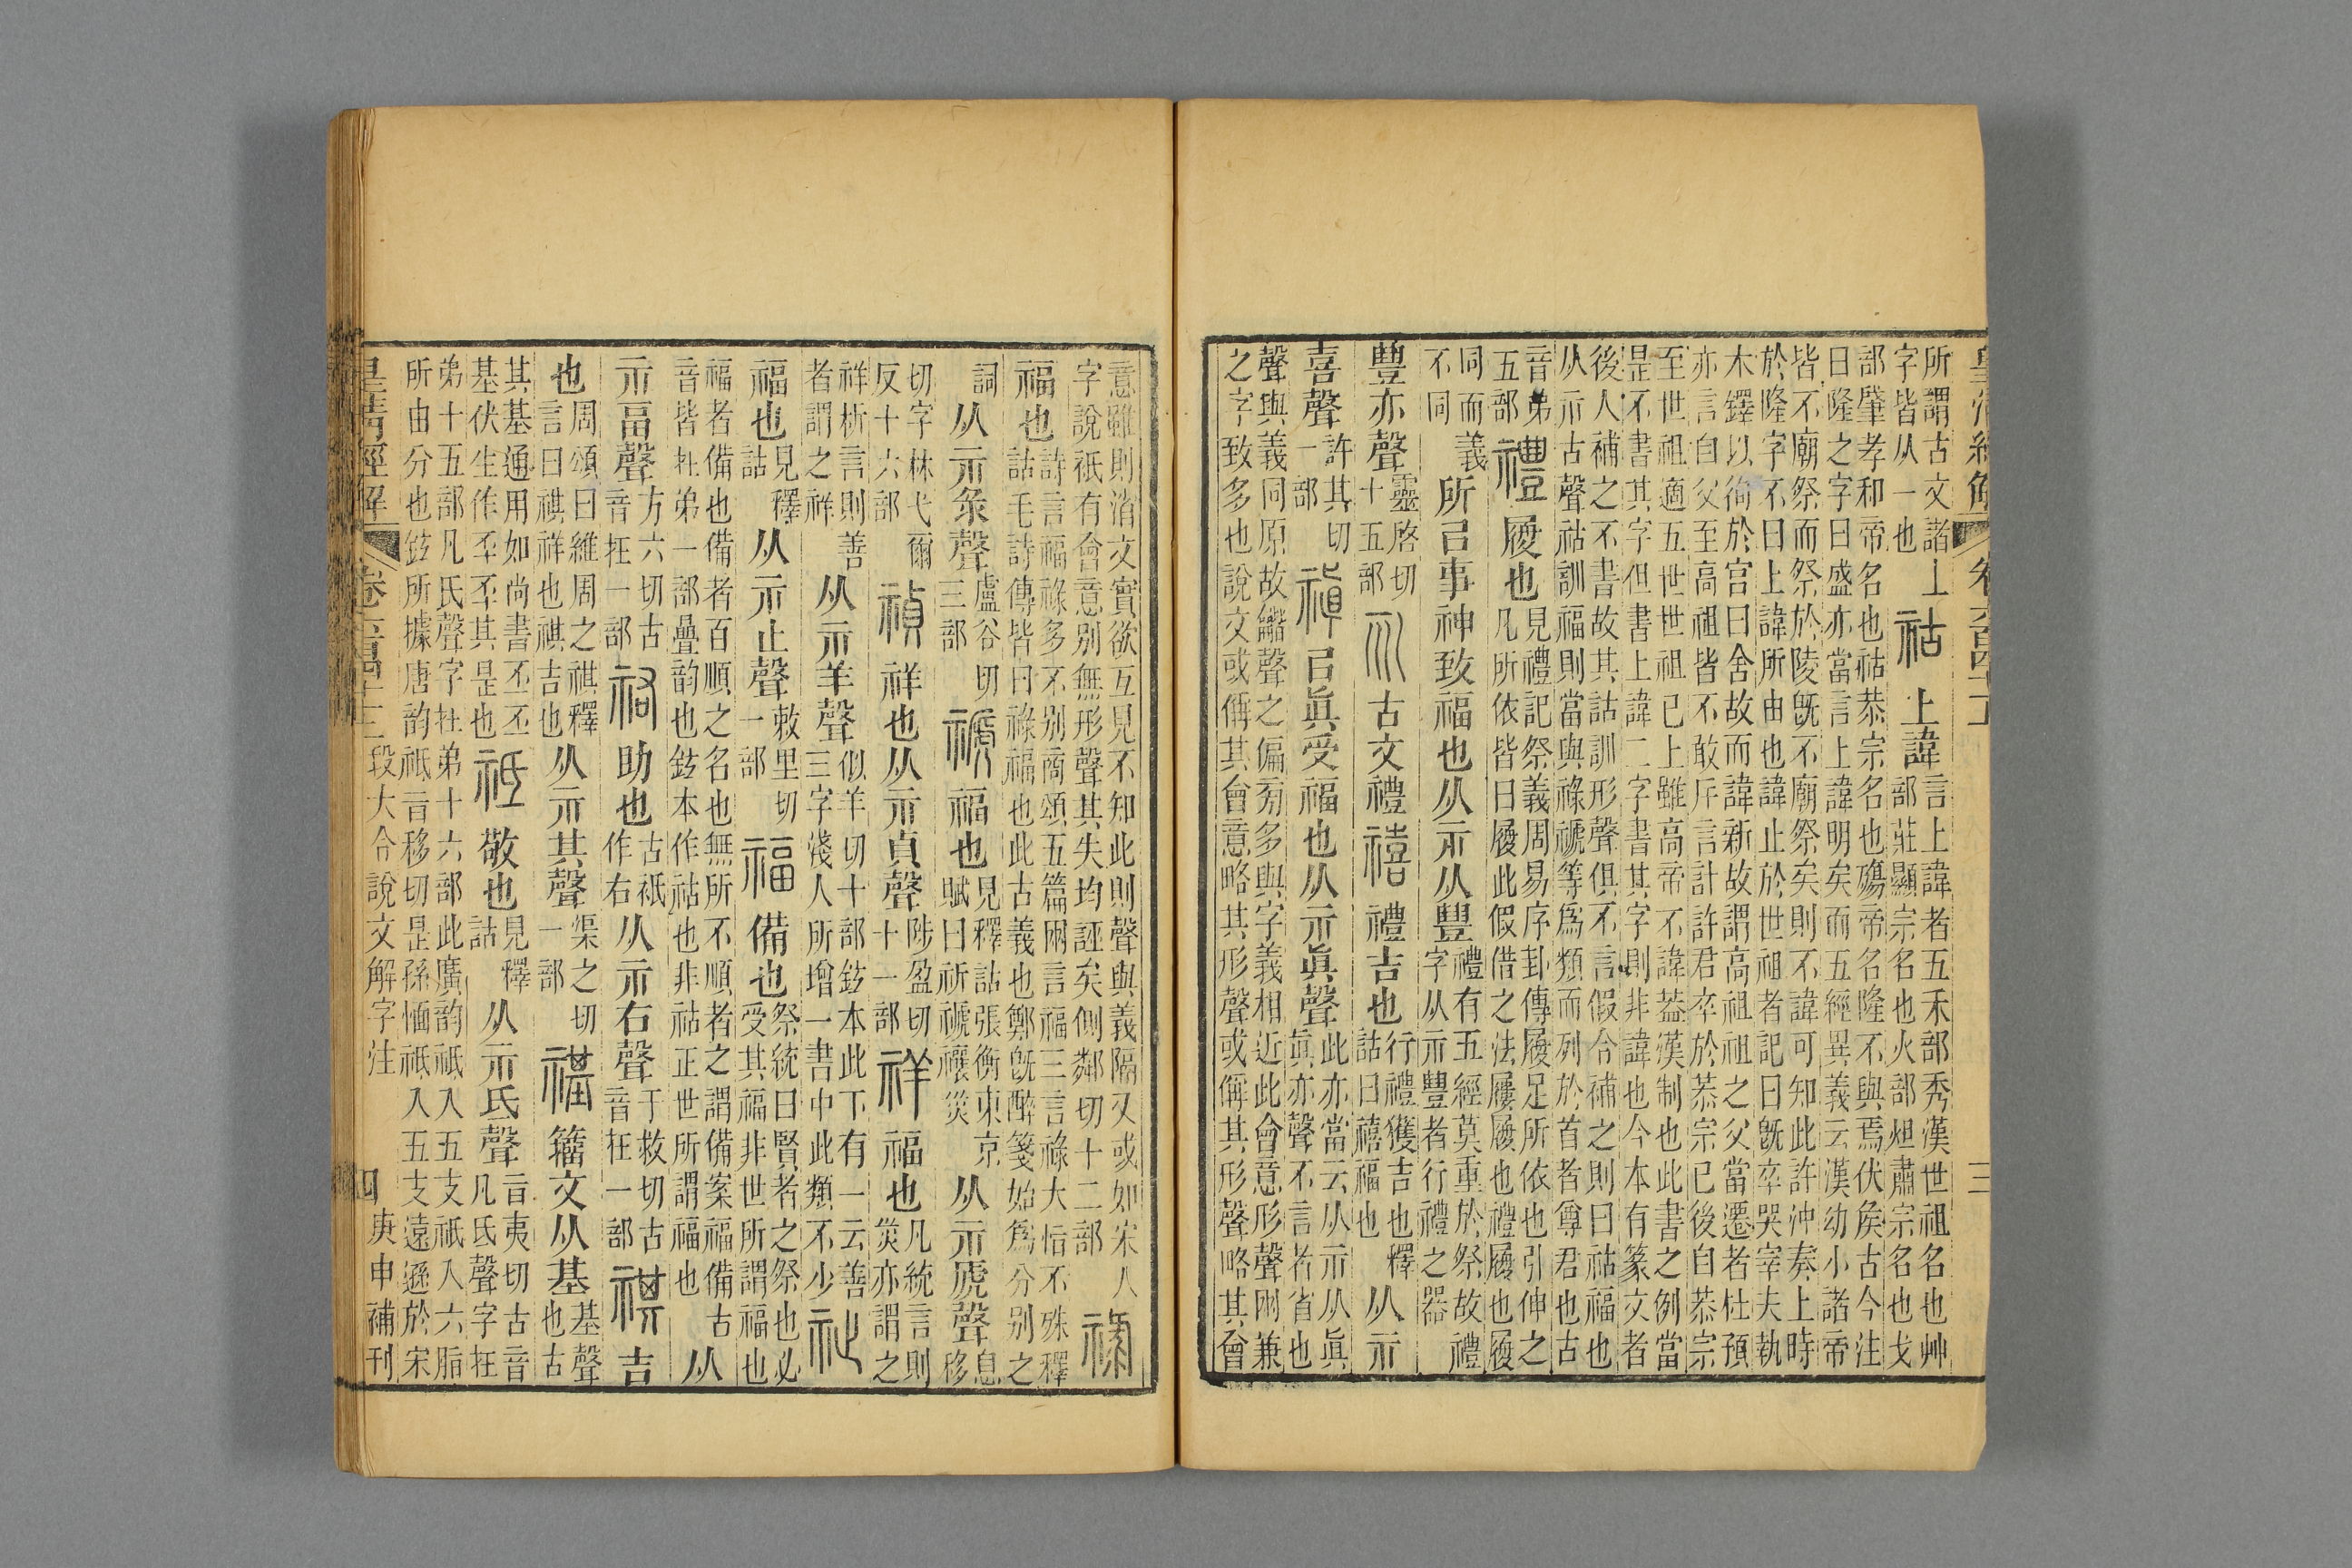 所謂古文諸丄字皆从一也祜上諱言上諱者五禾部秀漢世祖名也艸部莊顯宗名也火部炟肅宗名也戈
部肈孝和帝名也祜恭宗名也殤帝名隆不與焉伏矦古今注
曰隆之字曰盛亦當言上諱明矣而五經異義云漢幼小諸帝
皆不廟祭而祭於陵旣不廟祭矣則不諱可知此許沖奏上時
於隆字不曰上諱所由也諱止於世祖者記曰旣卒哭宰夫執
木鐸以徇於宮曰舍故而諱新故謂高祖之父當遷者杜預
亦言自父至高祖皆不敢斥言計許君卒於恭宗已後自恭宗
至世祖適五世世祖已上雖高帝不諱葢漢制也此書之例當
是不書其字但書上諱二字書其字則非諱也今本有篆文者
後人補之不書故其詁訓形聲俱不言假令補之則曰祜福也
从示古聲祜訓福則當與祿褫等爲類而列於首者尊君也古
音弟五部禮履也見禮記祭義周易序卦傳履足所依也引伸之凡所依皆曰履此假借之法屨履也禮履也履
同而義不同所㠯事神致福也从示从豊禮有五經莫重於祭故禮字从示豊者行禮之器
豊亦聲靈啓切十五部𠃞古文禮禧禮吉也行禮獲吉也釋詁曰禧福也从示
喜聲許其切一部禛㠯眞受福也从示眞聲此亦當云从示从眞眞亦聲不言者省也
聲與義同原故龤聲之偏旁多與字義相近此會意形聲兩兼
之字致多也說文或偁其會意略其形聲或偁其形聲略其會
皇清經解 卷六百四十一 三
意雖則渻文實欲互見不知此則聲與義隔又或如宋人
字說祇有會意別無形聲其失均誣矣側鄰切十二部祿
福也詩言福祿多不別商頌五篇兩言福三言祿大恉不殊釋詁毛詩傳皆曰祿福也此古義也鄭旣醉箋始爲分別之
詞从示彔聲盧谷切三部禠福也見釋詁張衡東京賦曰祈禠禳災从示虒聲息移
切字林弋爾反十六部禎祥也从示貞聲陟盈切十一部祥福也凡統言則災亦謂之
祥析言則善者謂之祥从示羊聲似羊切十部鉉本此下有一云善三字淺人所增一書中此類不少祉
福也見釋詁从示止聲敕里切一部福備也祭統曰賢者之祭也必受其福非世所謂福也
福者備也備者百順之名也無所不順者之謂備案福備古
音皆在弟一部疊韵也鉉本作祜也非祜正世所謂福也从
示畐聲方六切古音在一部祐助也古祇作右从示右聲于救切古音在一部祺吉
也周頌曰維周之祺釋言曰祺祥也祺吉也从示其聲渠之切一部禥籒文从基基聲也古
其基通用如尚書丕丕基伏生作丕丕其是也祗敬也見釋詁从示氐聲旨夷切古音凡氐聲字在
弟十五部凡氏聲字在弟十六部此廣韵祗入五支祇入六脂
所由分也鉉所據唐韵祗旨移切是孫愐祗入五支遠遜於宋
皇清經解 卷六百四十一 段大令說文解字注 四 庚申補刊